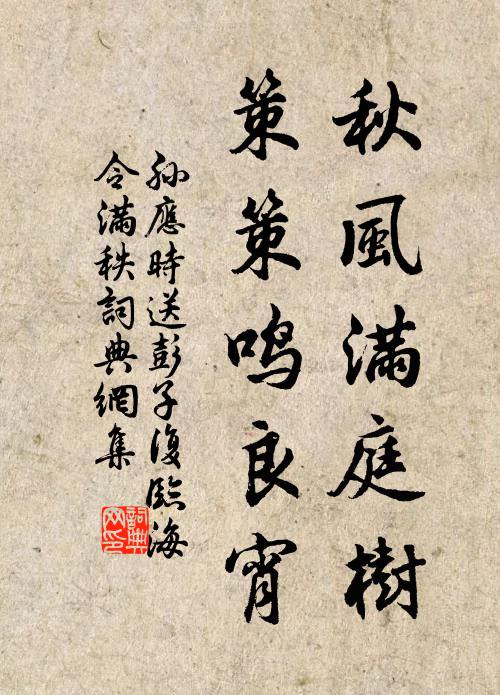 秋風滿庭樹
策策鳴良宵
孫應時送彭子復臨海
令滿秩詞典網集
詞典
网印